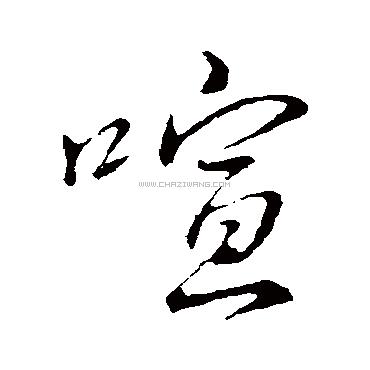 喧
WWW.CHAZIWANG.COM